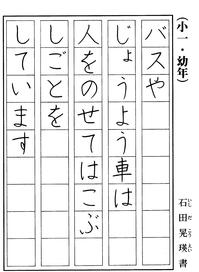 (小一・幼年)
バスや
じょうよう車は
人をのせてはこぶ
しごとを
しています
石田晃瑛書